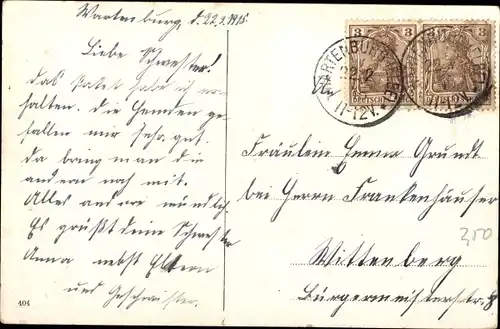 Wartenburg, d. 22.3.1915.
Liebe Schwester!
Das Paket habe ich er-
halten. Die Hemden ge-
fallen mir sehr gut.
da bring man die
andern noch mit.
Alles andre mündlich
Es grüßt deine Schwester
Anna nebst Eltern
und Geschwister.
404
3 3
DEUTSCHES
WARTENBURG
11-12V.
Fräulein Emma Grundt
bei Herrn Frankenhäuser
Wittenberg
Bürgermeisterstr. 8
3,50